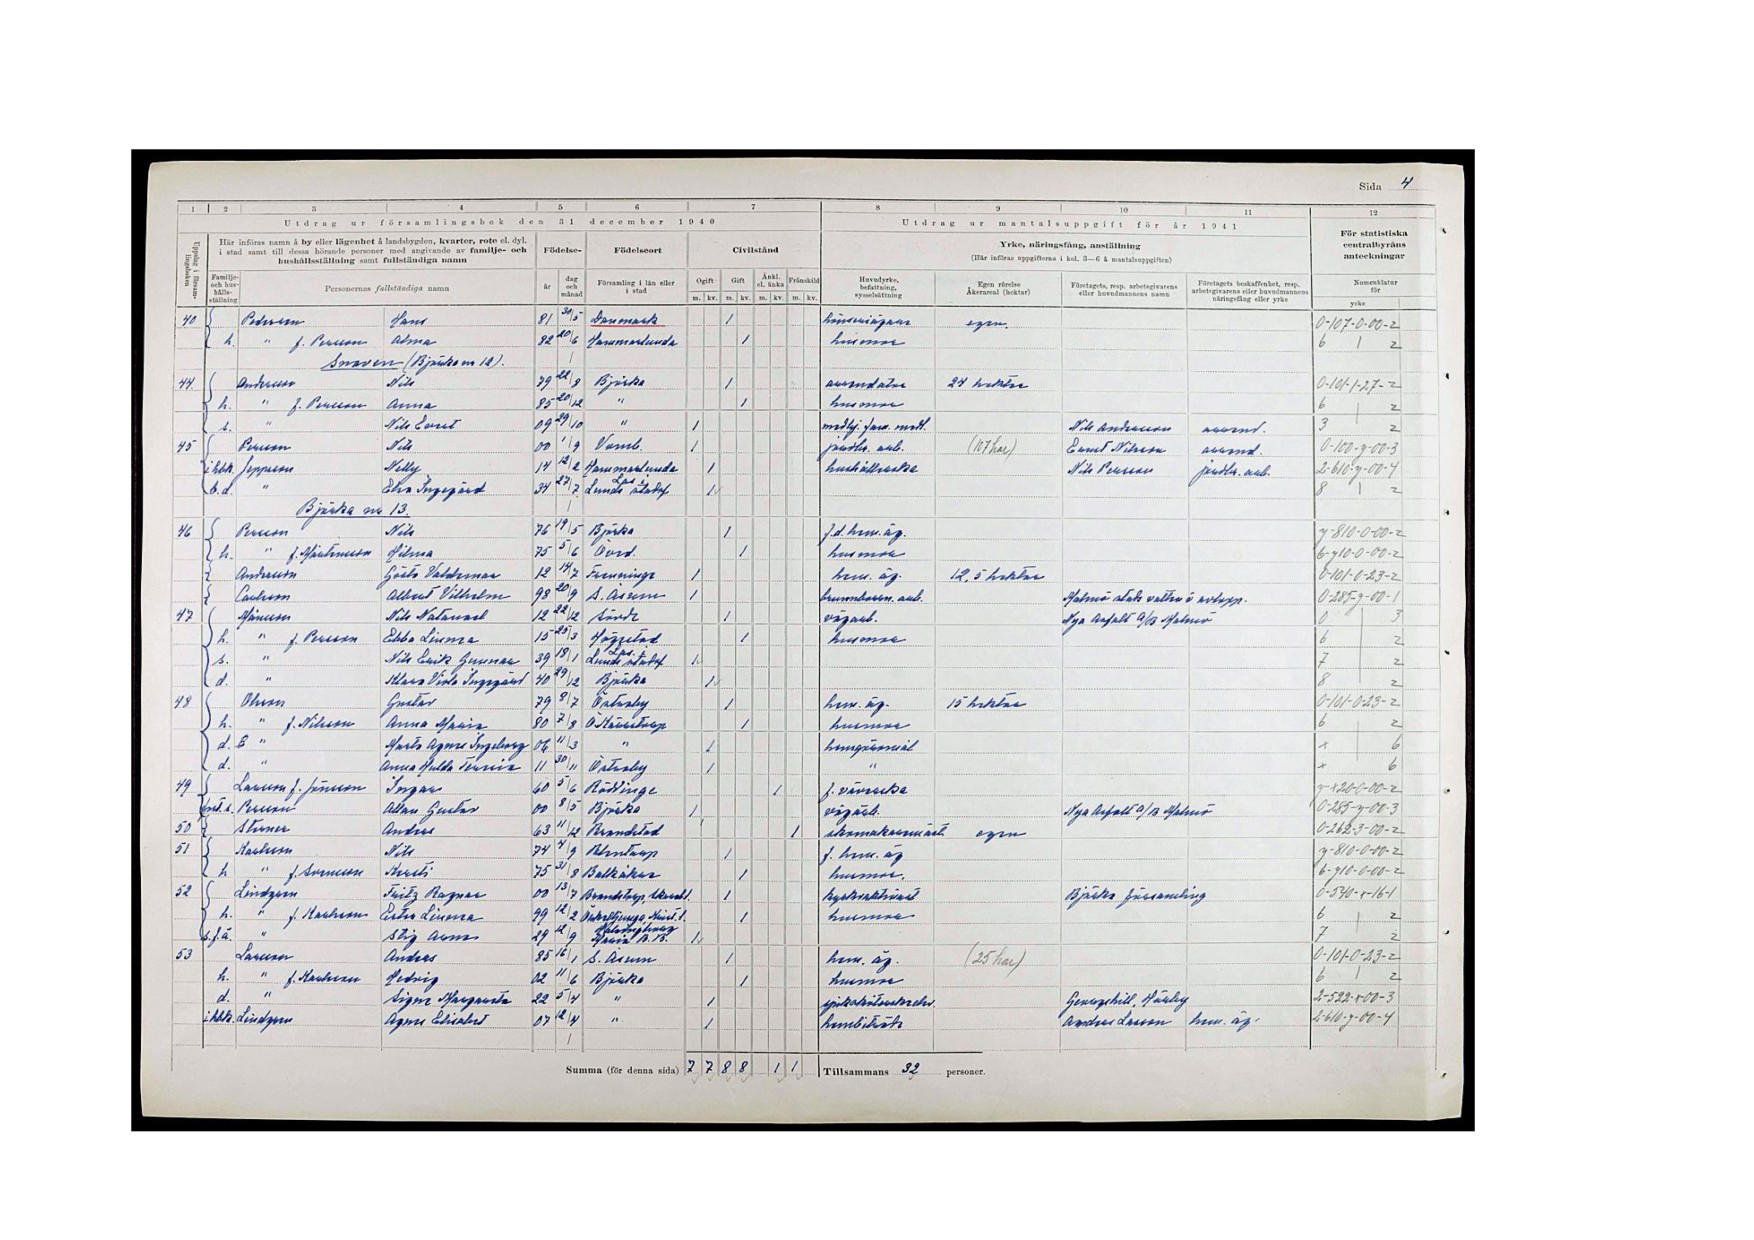 Sida 4
1 2 3 4 5 6 7 8 9 10 11 12
Utdrag ur församlingsbok den 31 december 1940 Utdrag ur mantalsuppgift för år 1941
Uppslag i församlingsboken
Här införas namn å by eller lägenhet å landsbygden, kvarter, rote el. dyl. i stad samt till dessa hörande personer med angivande av familje- och hushållsställning samt fullständiga namn
Födelse- Födelseort Civilstånd
Yrke, näringsfång, anställning
(Här införas uppgifterna i kol. 3—6 å mantalsuppgiften)
För statistiska centralbyråns anteckningar
Familje- och hushålls-ställning
Personernas fullständiga namn
år dag och månad Församling i län eller i stad
Ogift Gift Änkl. el. änka Frånskild
m. kv. m. kv. m. kv. m. kv.
Huvudyrke, befattning, sysselsättning
Egen rörelse Åkerareal (hektar)
Företagets, resp. arbetsgivarens eller huvudmannens namn
Företagets beskaffenhet, resp. arbetsgivarens eller huvudmannens näringsfång eller yrke
Nomenklatur för
yrke
40 Pedersen Hans 81 30/5 Danmark 1 egen. 0-107-0-00-2
h. " f. Persson Alma 82 20/6 Hammarlunda 1 husmor 6 1 2
(Bjärka nr 12).
44 Andersson Nils 79 22/9 Bjärka 1 arrendator 24 hektar 0-101-1-27-2
h. " f. Persson Anna 85 20/12 " 1 husmor 6 2
s. " Nils Ernst 09 29/10 " 1 medhj. fam. medl. Nils Andersson arrend. 3 2
45 Persson Nils 00 1/9 Vomb. 1 jordbr. arb. (107 har) Ernst Nilsson arrend. 0-100-y-00-3
i hbk. Jeppsson Nelly 14 12/2 Hammarlunda 1 hushållerska Nils Persson jordbr. arb. 2-610-y-00-4
b.d. " Elsa Ingegärd 34 27/7 Lunds 1 8 1 2
Bjärka nr 13.
46 Persson Nils 76 19/5 Bjärka 1 f.d. hem. äg. y-810-0-00-2
h. " f. Mårtensson Hilma 75 5/6 Övid. 1 husmor 6-910-0-00-2
Andersson Gösta Valdemar 12 14/7 Fränninge 1 hem. äg. 12,5 hektar 0-101-0-23-2
Carlsson Albert Vilhelm 98 20/9 S. Åsum 1 brunnborrn. arb. Malmö stads 0-285-y-00-1
47 Månsson Nils Natanael 12 22/12 1 vägarb. Nya Asfalt A/B Malmö 0 3
h. " f. Persson Ebba Linnea 15 25/3 Högestad 1 husmor 6 2
s. " Nils Erik Gunnar 39 18/1 Lunds 1 7 2
d. " Klara Viola Ingegärd 40 29/12 Bjärka 1 8 2
48 Olsson Gustav 79 8/7 Österby 1 hem. äg. 15 hektar 0-101-0-23-2
h. " f. Nilsson Anna Maria 80 7/8 1 husmor 6 2
d. E " Marta Agnes Ingeborg 06 11/3 " 1 x 6
d. " Anna Hulda 11 30/11 Österby 1 " x 6
49 Larsson f. Jönsson Ingar 60 5/6 Röddinge 1 y-x20-0-00-2
s. Persson Allan Gustav 00 8/5 Bjärka 1 vägarb. Nya Asfalt A/B Malmö 0-285-y-00-3
50 Andreas 63 11/12 Brandstad 1 egen 0-262-3-00-2
51 Karlsson Nils 74 4/9 Blentarp 1 f. hem. äg y-810-0-00-2
h " f. Svensson Kersti 75 31/8 Balkåkra 1 husmor. 6-910-0-00-2
52 Lindgren Fritz Ragnar 00 13/7 1 Bjärka församling 0-540-x-16-1
h. " f. Karlsson Ester Linnea 99 12/2 1 husmor 6 1 2
" Stig Arne 29 12/9 1 7 2
53 Larsson Andreas 85 16/1 S. Åsum 1 hem. äg. (25 har) 0-101-0-23-2
h. " f. Karlsson Hedvig 02 11/6 Bjärka 1 husmor 6 1 2
d. " Signe Margareta 22 5/4 " 1 2-522-x-00-3
i hbk. Lindgren Agnes Elisabet 07 12/4 " 1 hembiträde Andreas Larsson hem. äg. 2-610-y-00-4
Summa (för denna sida) 7 7 8 8 1 1 Tillsammans 32 personer.